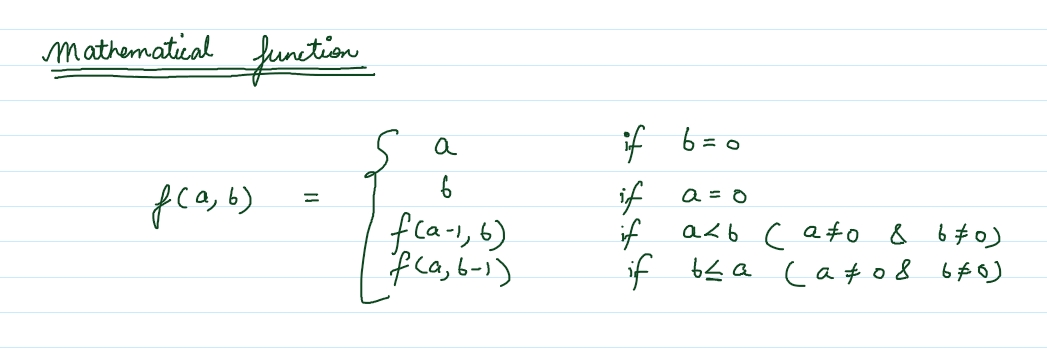 Mathematical function
a if b = 0
b if a = 0
f(a, b) =
f(a-1, b) if a < b ( a ≠ 0 & b ≠ 0)
f(a, b-1) if b ≤ a ( a ≠ 0 & b ≠ 0)